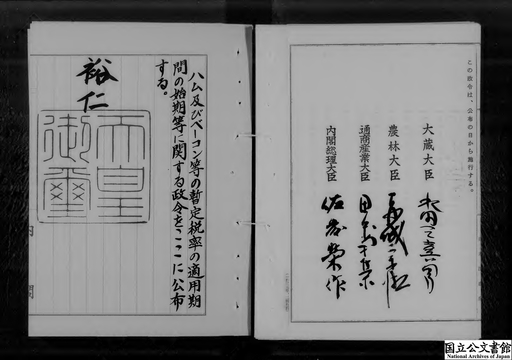 この政令は、公布の日から施行する。
大蔵大臣
農林大臣
通商産業大臣
内閣総理大臣 佐藤榮作
ハム及びベーコン等の暫定税率の適用期
間の始期等に関する政令をここに公布
する。
裕仁
天皇
御璽
内
閣
国立公文書館
National Archives of Japan